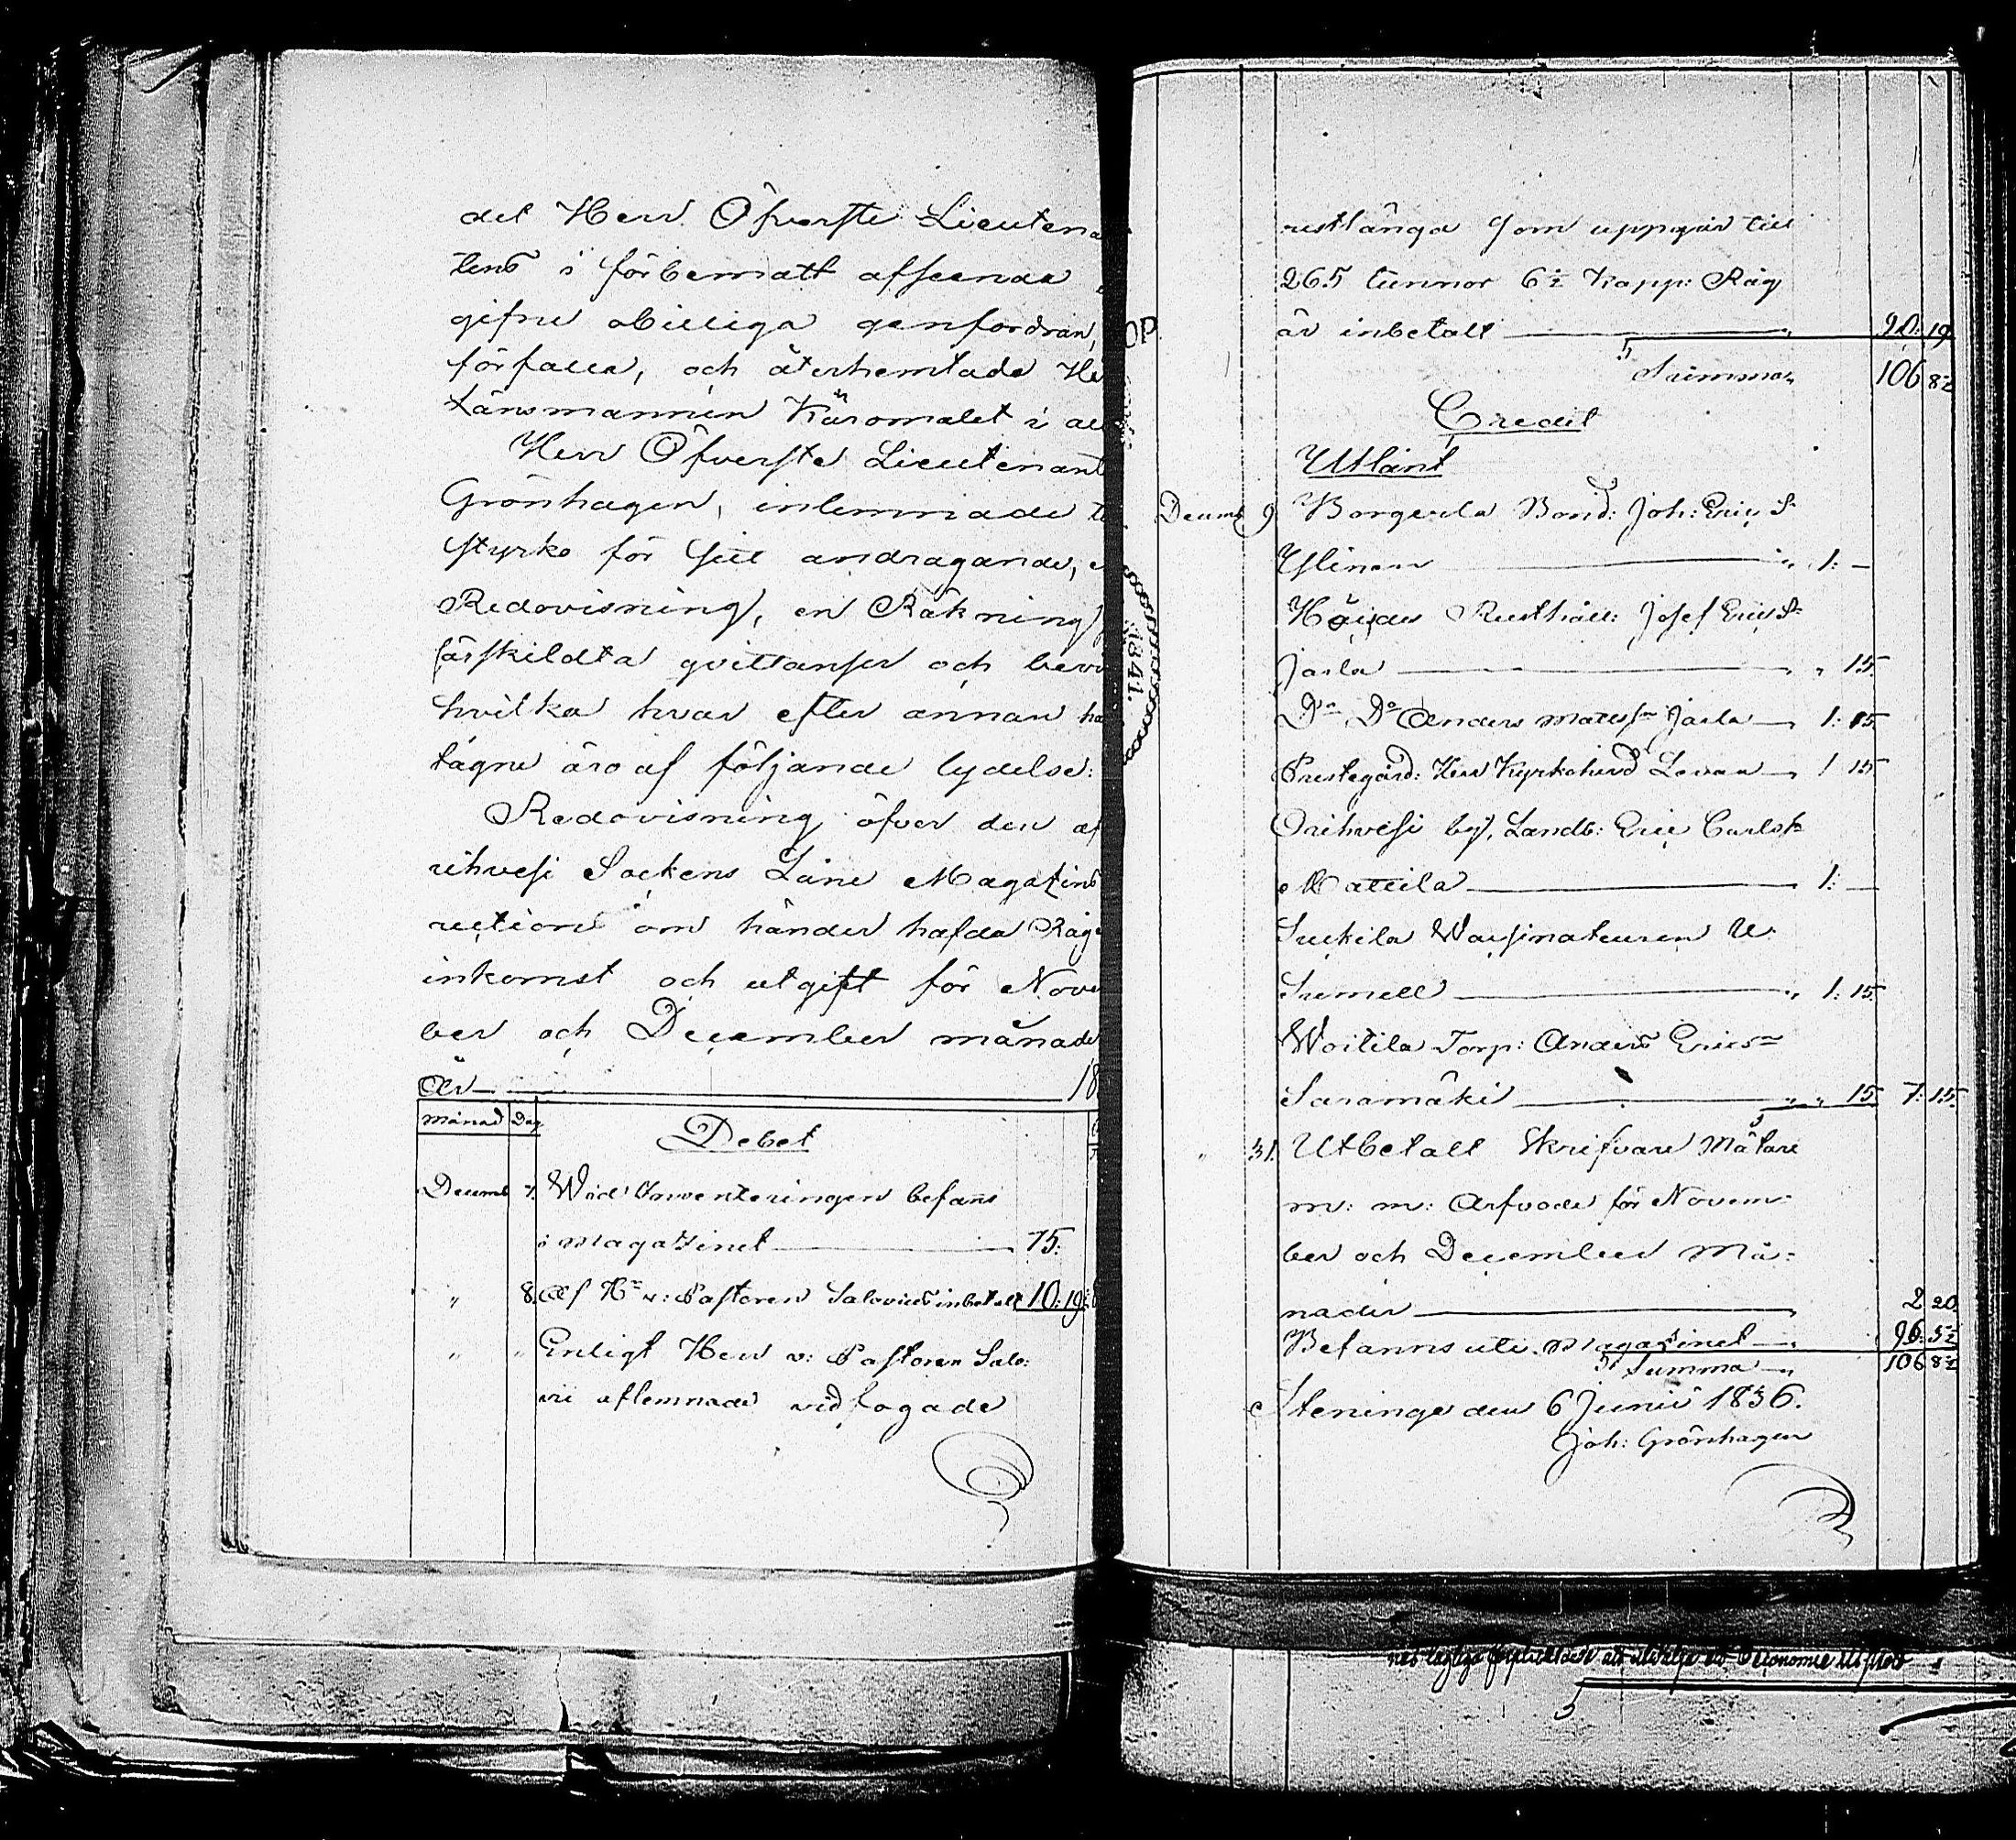 det Herr Öfverste Lieutena
tens i förbemält afseende
gifne obilliga genfordran,
förfalla, och återhemtade He
länsmannen Käromålet i al
Herr Öfverste Lieutenant
Grönhagen, inlemnade t
styrko för sitt andragande, e
Redovisning, en Räkning
särskildta qvittanser och bevi
hvilka hvar efter annan ha
tagne äro af följande lydelse:
Redovisning öfver den af
rihvesi Sockens Låne Magazins
rection om händer hafda Råg
inkomst och utgift för Nove
ber och December månader
År 18
Månad Dag
Debet
Decemb 7. Wid Inventeringen befans
i Magazinet 75.
" 8. Af Hr v: Pastoren Salovius inbetalt 10:19½
" " Enligt Herr v: Pastoren Salo:
vii aflemnade vidfogade
restlänga som uppgår till
265 tunnor 6½ Kapp: Råg
är inbetalt 20. 19
Summa 106 8½
Credit
Utlånt
Decemb 9 Borgerla Bond: Joh: Erics S:
Yslinen 1: —
Rusthåll: Josef Erics S:
Jaila " 15.
Do Do Anders Matts sn Jaila 1: 15
Prestegård: Herr Kyrkoherd 1 15
Orihvesi by, Landb: Eric Carls sn
Mattila 1: —
1: 15.
Woitila Torp: Anders Ericsn
Saramäki " 15. 7: 15.
" 31. Utbetalt Skrifvare Mätare
m: m: Arfvode för Novem-
ber och December Må-
nader 2 20.
Befanns uti Magazinet 96: 5½
Summa 106 8½
Steninge den 6 Junii 1836.
Joh: Grönhagen
1841.